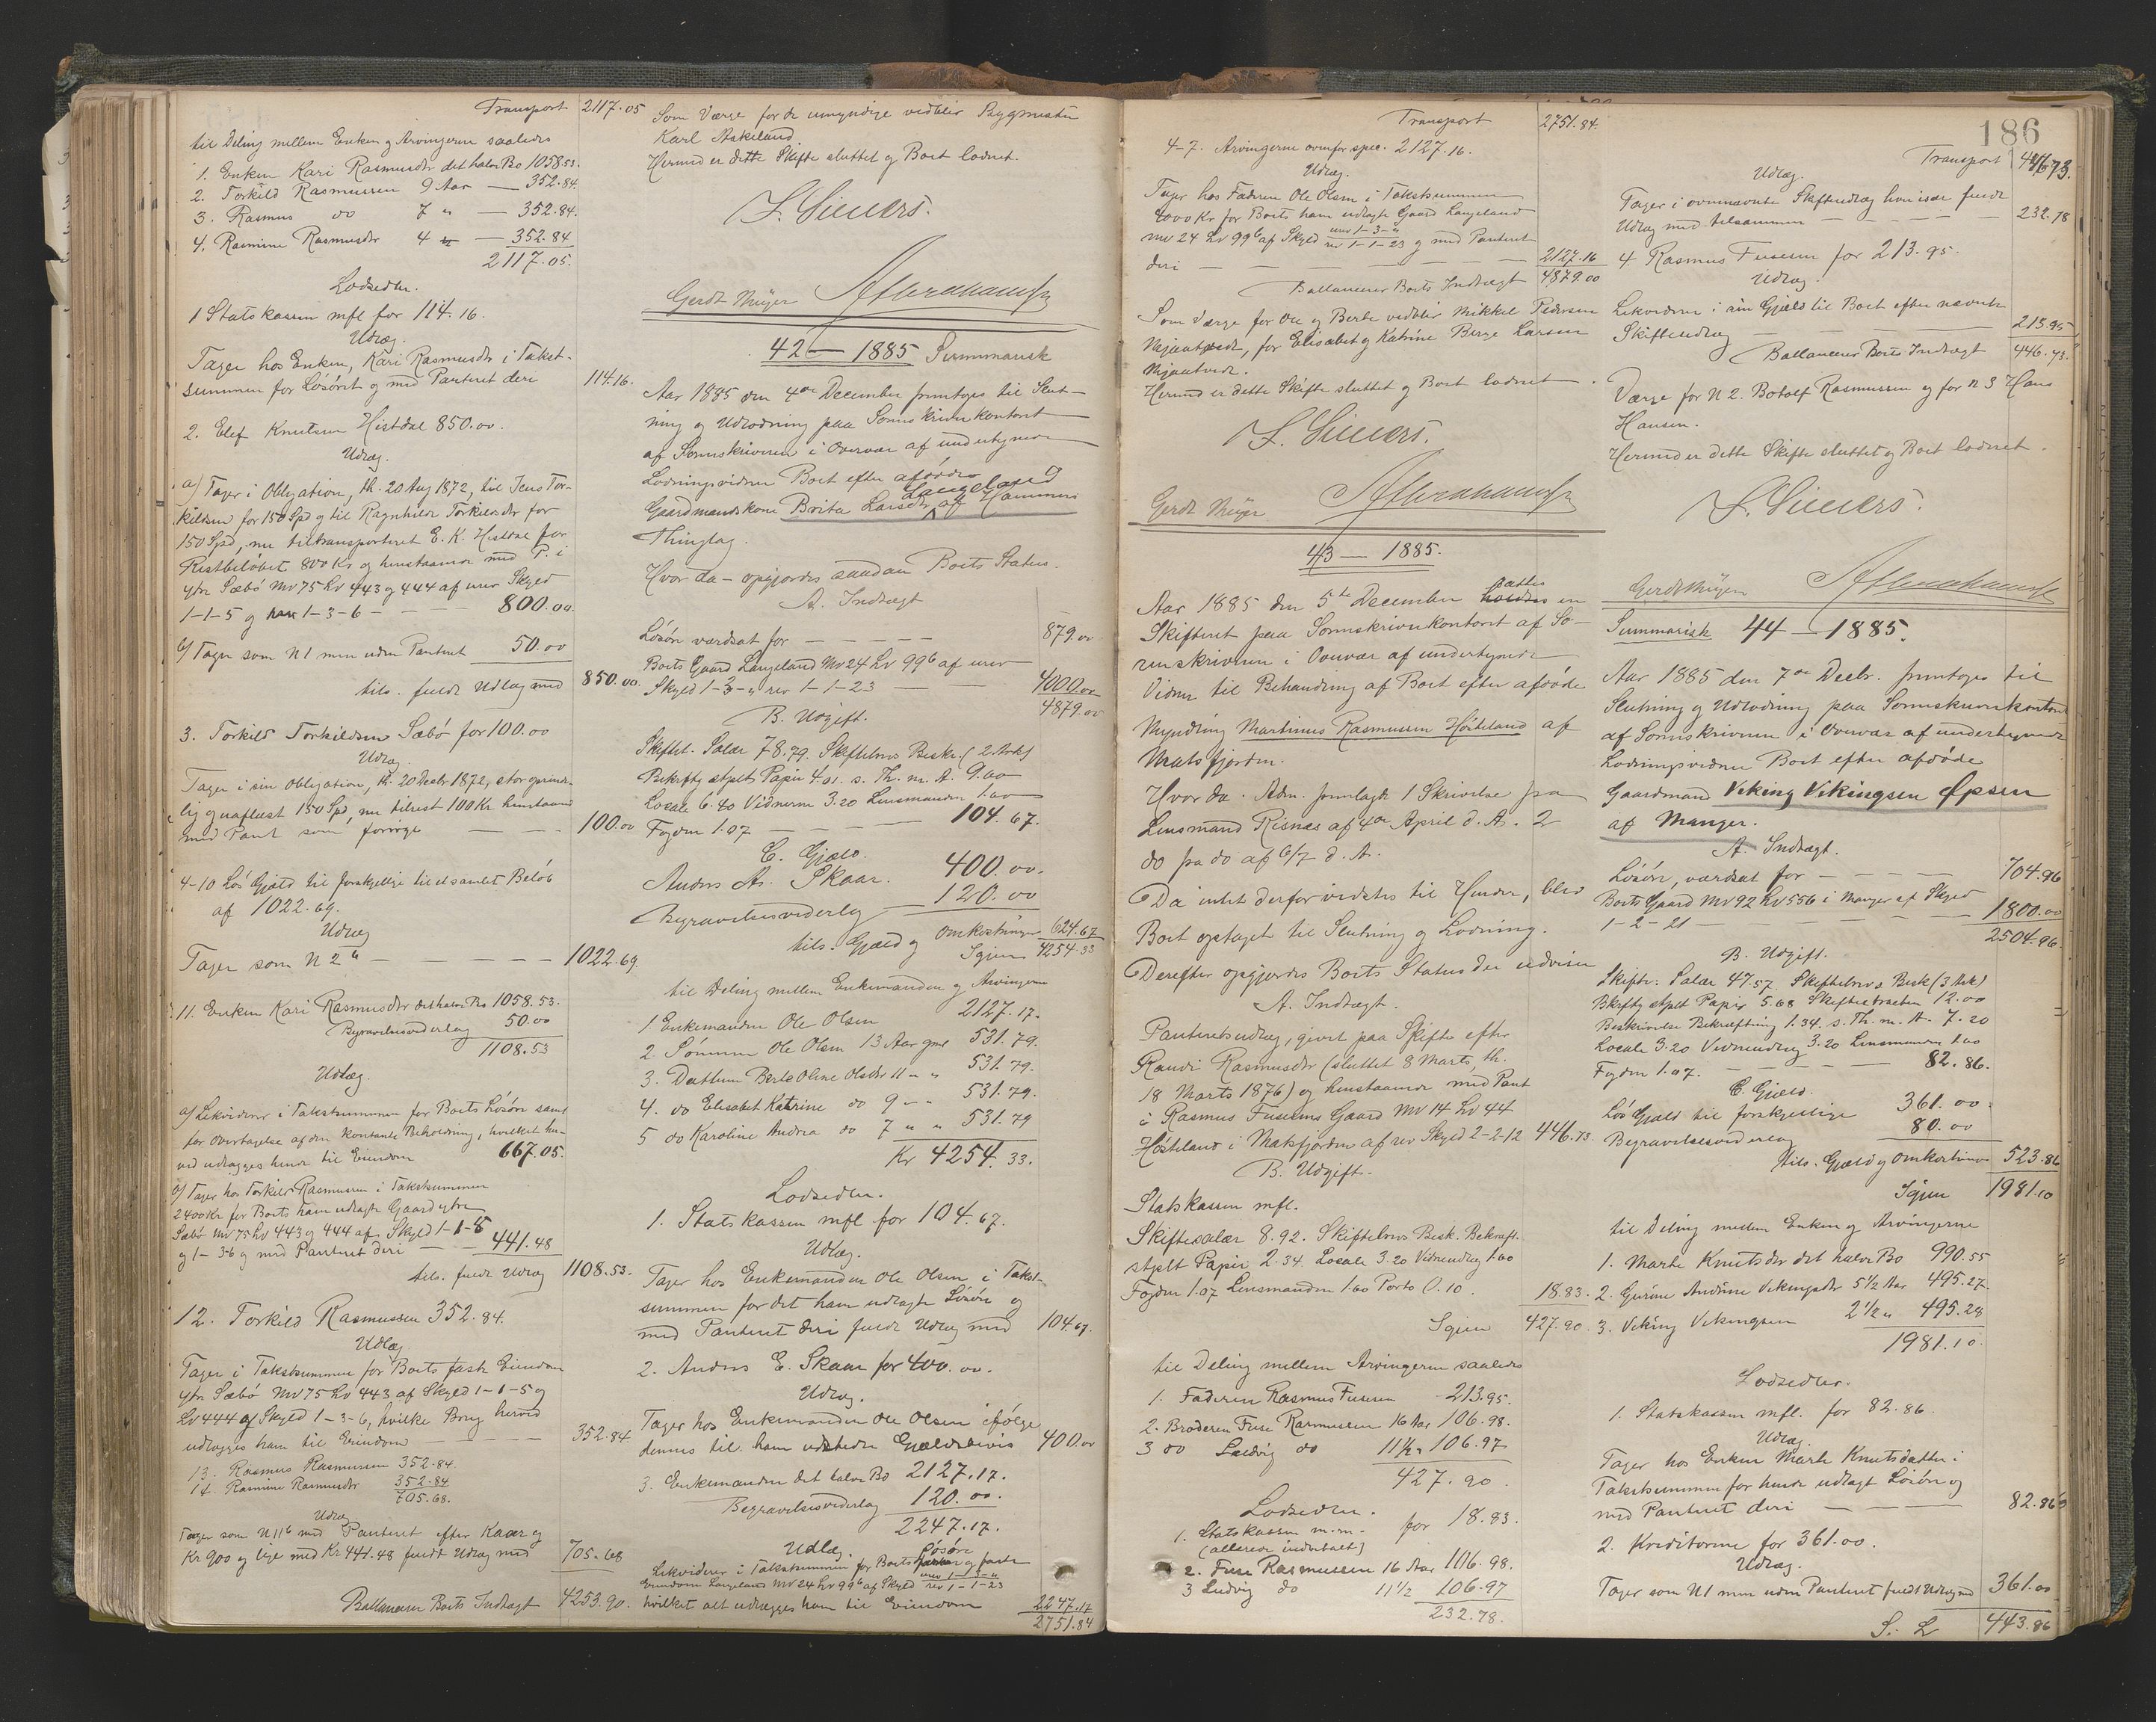 Transport 2117.05
til Deling mellem Enken og Arvingerne saaledes
1. Enken Kari Rasmusdr det halve Bo 1058.53.
2. Torkild Rasmussen 9 Aar — 352.84.
3. Rasmus do 7 " — 352.84.
4. Rasmine Rasmusdr 4 " — 352.84
2117.05.
Lodsedler.
1 Statskassen mfl for 114.16.
Udlæg.
Tager hos Enken, Kari Rasmusdr i Takst-
summen for Løsøret og med Panteret deri 114.16.
2. Elef Knutsen Histdal 850.00.
Udlæg.
a) Tager i Obligation, th. 20 Aug 1872, til Jens Tor-
kildsen for 150 Spd og til Ragnhilda Torkildsdr for
150 Spd, nu transporteret E. K. Histdal for
Restbeløbet 800 Kr og henstaaende med P. i
ytre Sæbø Mv 75 Lv 443 og 444 af urev Skyld
1-1-5 og 1-3-6 — 800.00
b) Tager som N 1 men uden Panteret 50.00
tils. fuldt Udlæg med 850.00.
3. Torkild Torkildsen Sæbø for 100.00
Udlæg
Tager i sin Obligation, th. 20 Decbr 1872, stor oprinde-
lig og uaflæst 150 Spd, nu tilrest 100 Kr henstaaende
med Pant som forrige — 100.00
4-10 Løs Gjæld til forskjellige til et samlet Beløb
af 1022.69.
Udlæg
Tager som N 2 b — 1022.69.
11. Enken Kari Rasmusdr det halve Bo 1058.53.
Begravelsesvederlag 50.00
1108.53
Udlæg.
a) Likviderer i Takstsummen for Boets Løsøre samt
for Overtagelse af den kontante Beholdning, hvilket her-
ved udlægges hende til Eiendom 667.05.
b) Tager hos Torkild Rasmussen i Takstsummen
2400 Kr for Boets ham udlagte Gaard ytre
Sæbø Mv 75 Lv 443 og 444 af Skyld 1-1-5
og 1-3-6 og med Panteret deri — 441.48
tils. fuldt Udlæg 1108.53.
12. Torkild Rasmussen 352.84.
Udlæg
Tager i Takstsummen for Boets faste Eiendom
ytre Sæbø Mv 75 Lv 443 af Skyld 1-1-5 og
Lv 444 af Skyld 1-3-6, hvilke Brug herved
udlægges ham til Eiendom — 352.84.
13. Rasmus Rasmussen 352.84.
14. Rasmine Rasmusdr 352.84
705.68.
Udlæg
Tager som N 11 b med Panteret efter
Kr 900 og lige med Kr 441.48 fuldt Udlæg med 705.68
Ballancerer Boets Indtægt 4253.90.
Som Værge for de umyndige vedblir Bygmester
Karl Askeland
Hermed er dette Skifte sluttet og Boet lodnet.
S. Sivers.
Gerdt Meyer Abrahamsen
42 — 1885 Summarisk
Aar 1885 den 4de December foretoges til Slut-
ning og Udlodning paa Sorenskriverkontoret
af Sorenskriveren i Overvær af undertegnede
Lodningsvidner Boet efter afdøde
Langeland
Gaardmandskone Brita Larsdr af Hammers
Thinglag.
Hvor da — opgjordes saadan Boets Status.
A. Indtægt
Løsøre værdsat for — 879.00
Boets Gaard Langeland Mv 24 Lv 99b af urev
Skyld 1-3-" rev 1-1-23 — 4000.00
4879.00
B. Udgift.
Skiftet. Salær 78.79. Skiftebrevs Beskr. (2 Ark)
Bekræft stplt Papir 4.01. s. Th. m. A. 9.00
Locale 6.40 Vidnerne 3.20 Lensmanden 1.00
Fogden 1.07 — 104.67.
C. Gjæld.
Anders As. Skaar. 400.00.
Begravelsesvederlag — 120.00
tils. Gjæld og Omkostninger 624.67
Igjen 4254.33
til Deling mellem Enkemanden og Arvingerne
1 Enkemanden Ole Olsen 2127.17.
2 Sønnen Ole Olsen 13 Aar gml 531.79.
3. Datteren Berte Oline Olsdr 11 " " 531.79.
4. do Elisabet Katrine do 9 " " 531.79.
5 do Karoline Andrea do 7 " " 531.79
Kr 4254.33.
Lodsedler.
1. Statskassen mfl for 104.67.
Udlæg.
Tager hos Enkemanden Ole Olsen i Takst-
summen for det ham udlagte Løsøre og
med Panteret deri fuldt Udlæg med 104.67.
2. Anders E. Skaar for 400.00.
Udlæg.
Tager hos Enkemanden Ole Olsen ifølge
dennes til ham udstedte Gjældsbevis 400.00
3. Enkemanden det halve Bo 2127.17.
Begravelsesvederlag 120.00.
2247.17.
Udlæg. Løsøre
Likviderer i Takstsummen for Boets og faste
Eiendom Langeland Mv 24 Lv 99b af Skyld urev 1-3-" rev 1-1-23
hvilket alt udlægges ham til Eiendom 2247.17
2751.84
186
Transport 2751.84.
4-7. Arvingerne ovenfor spec. 2127.16.
Udlæg.
Tager hos Faderen Ole Olsen i Takstsummen
4000 Kr for Boets ham udlagte Gaard Langeland
Mv 24 Lv 99b af Skyld urev 1-3-" rev 1-1-23 og med Panteret
deri — 2127.16
Ballancerer Boets Indtægt 4879.00
Som Værge for Ole og Berte vedblir Mikkel Pedersen
Mjaatvedt, for Elisabet og Katrine Børge Larsen
Mjaatvedt.
Hermed er dette Skifte sluttet og Boet lodnet.
S. Sivers.
Gerdt Meyer Abrahamsen
43 — 1885.
sattes
Aar 1885 den 5te December holdtes en
Skifteret paa Sorenskriverkontoret af So-
renskriveren i Overvær af undertegnede
Vidner til Behandling af Boet efter afdøde
Myndling Martinus Rasmussen Høsteland af
Matsfjorden.
Hvor da. Adm. fremlagde 1 Skrivelse fra
Lensmand Risnæs af 4de April d. A. 2
do fra do af 6/7 d. A.
Da intet derfor vidstes til Hinder, blev
Boet optaget til Slutning og Lodning.
Derefter opgjordes Boets Status der udviser
A. Indtægt.
Panteretsudlæg, givet paa Skifte efter
Randi Rasmusdr (sluttet 8 Marts, th.
18 Marts 1876) og henstaaende med Pant
i Rasmus Fusesens Gaard Mv 14 Lv 44
Høsteland i Matsfjorden af rev Skyld 2-2-12 446.73.
B. Udgift.
Statskassen mfl.
Skiftesalær 8.92. Skiftebrevs Besk. Bekræft.
stplt Papir 2.34 Locale 3.20 Vidneudlæg 1.60
Fogden 1.07 Lensmanden 1.60 Porto 0.10. 18.83.
Igjen 427.90.
til Deling mellem Arvingerne saaledes
1. Faderen Rasmus Fusesen 213.95.
2. Broderen Fuse Rasmussen 16 Aar 106.98.
3 do Ludvig do 11½ " 106.97
427.90
Lodsedler.
1. Statskassen m.m. for 18.83.
(allerede indbetalt)
2. Fuse Rasmussen 16 Aar 106.98.
3 Ludvig do 11½ 106.97
232.78.
Transport 446.73.
Udlæg.
Tager i ovennævnte Skifteudlæg hver især fuldt
Udlæg med tilsammen — 232.78
4 Rasmus Fusesen for 213.95.
Udlæg
Likviderer i sin Gjæld til Boet efter nævnte
Skifteudlæg — 213.95
Ballancerer Boets Indtægt 446.73.
Værge for N 2. Botolf Rasmussen og for N 3 Hans
Hansen.
Hermed er dette Skifte sluttet og Boet lodnet.
S. Sivers.
Gerdt Meyer Abrahamsen
Summarisk 44 — 1885.
Aar 1885 den 7de Decbr. foretoges til
Slutning og Udlodning paa Sorenskriverkontoret
af Sorenskriveren i Overvær af undertegnede
Lodningsvidner Boet efter afdøde
Gaardmand Viking Vikingsen Øpsen
af Manger.
A. Indtægt.
Løsøre, værdsat for — 704.96
Boets Gaard Mv 92 Lv 556 i Manger af Skyld
1-2-21 — 1800.00
2504.96.
B. Udgift.
Skifter. Salær 47.57. Skiftebrevs Besk (3 Ark)
Bkræftg stplt Papir 5.68 Skifteextracten 12.00
Beskrivelse Bekræftning 1.34. s. Th. m. A. 7.20
Locale 3.20 Vidneudlæg 3.20 Lensmanden 1.60
Fogden 1.07. — 82.86.
C. Gjæld.
Løs Gjæld til forskjellige 361.00
Begravelsesvederlag 80.00
tils. Gjæld og Omkostninger 523.86
Igjen 1981.10
til Deling mellem Enken og Arvingerne
1. Marte Knutsdr det halve Bo 990.55
2. Gurine Andrine Vikingsdr 5½ Aar 495.27.
3. Viking Vikingsen 2½ " 495.28
1981.10.
Lodsedler.
1. Statskassen mfl. for 82.86.
Udlæg
Tager hos Enken Marte Knutsdatter i
Takstsummen for hende udlagt Løsøre og
med Panteret deri — 82.86
2. Kreditorerne for 361.00.
Udlæg.
Tager som N 1 men uden Panteret fuldt Udlæg med 361.00
S. L 443.86